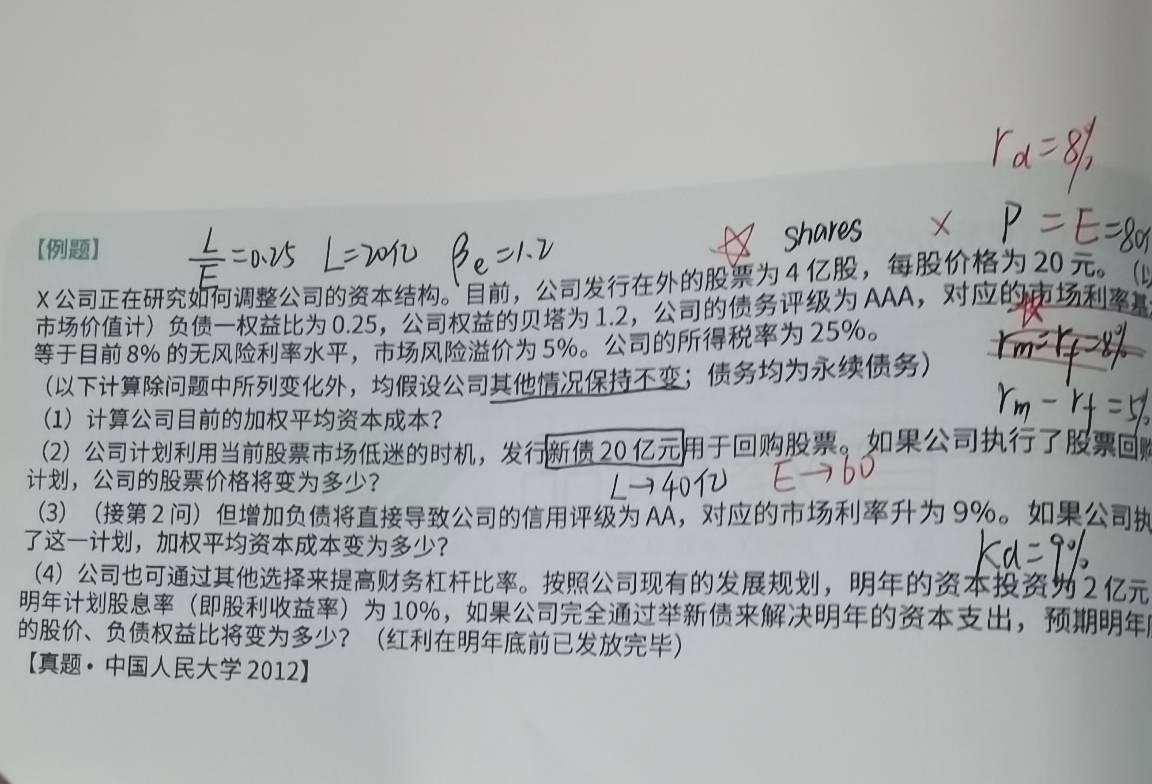 r_d=8%
【例题】 L/E=0.25 L=20亿 β_e=1.2 ☆ shares × P = E=80
X公司正在研究如何调整公司的资本结构。目前，公司发行在外的股票为4亿股，每股价格为20元。（以
市场价值计）负债一权益比为0.25，公司权益的贝塔为1.2，公司的债务评级为AAA，对应的市场利率基
等于目前8%的无风险利率水平，市场风险溢价为5%。公司的所得税率为25%。
r_m=r_f=8%
（以下计算除问题中所列变化外，均假设公司其他情况保持不变；债务均为永续债务）
r_m-r_f=5%
（1）计算公司目前的加权平均资本成本？
（2）公司计划利用当前股票市场低迷的时机，发行新债20亿元用于回购股票。如果公司执行了股票回购
计划，公司的股票价格将变为多少？
L→40亿 E→60
（3）（接第2问）但增加负债将直接导致公司的信用评级为AA，对应的市场利率升为9%。如果公司执
了这一计划，加权平均资本成本变为多少？
Kd=9%
（4）公司也可通过其他选择来提高财务杠杆比率。按照公司现有的发展规划，明年的资本投资为2亿元
明年计划股息率（即股利收益率）为10%，如果公司完全通过举新债来解决明年的资本支出，预期明年
的股价、负债权益比将变为多少？（红利在明年底前已发放完毕）
【真题·中国人民大学2012】